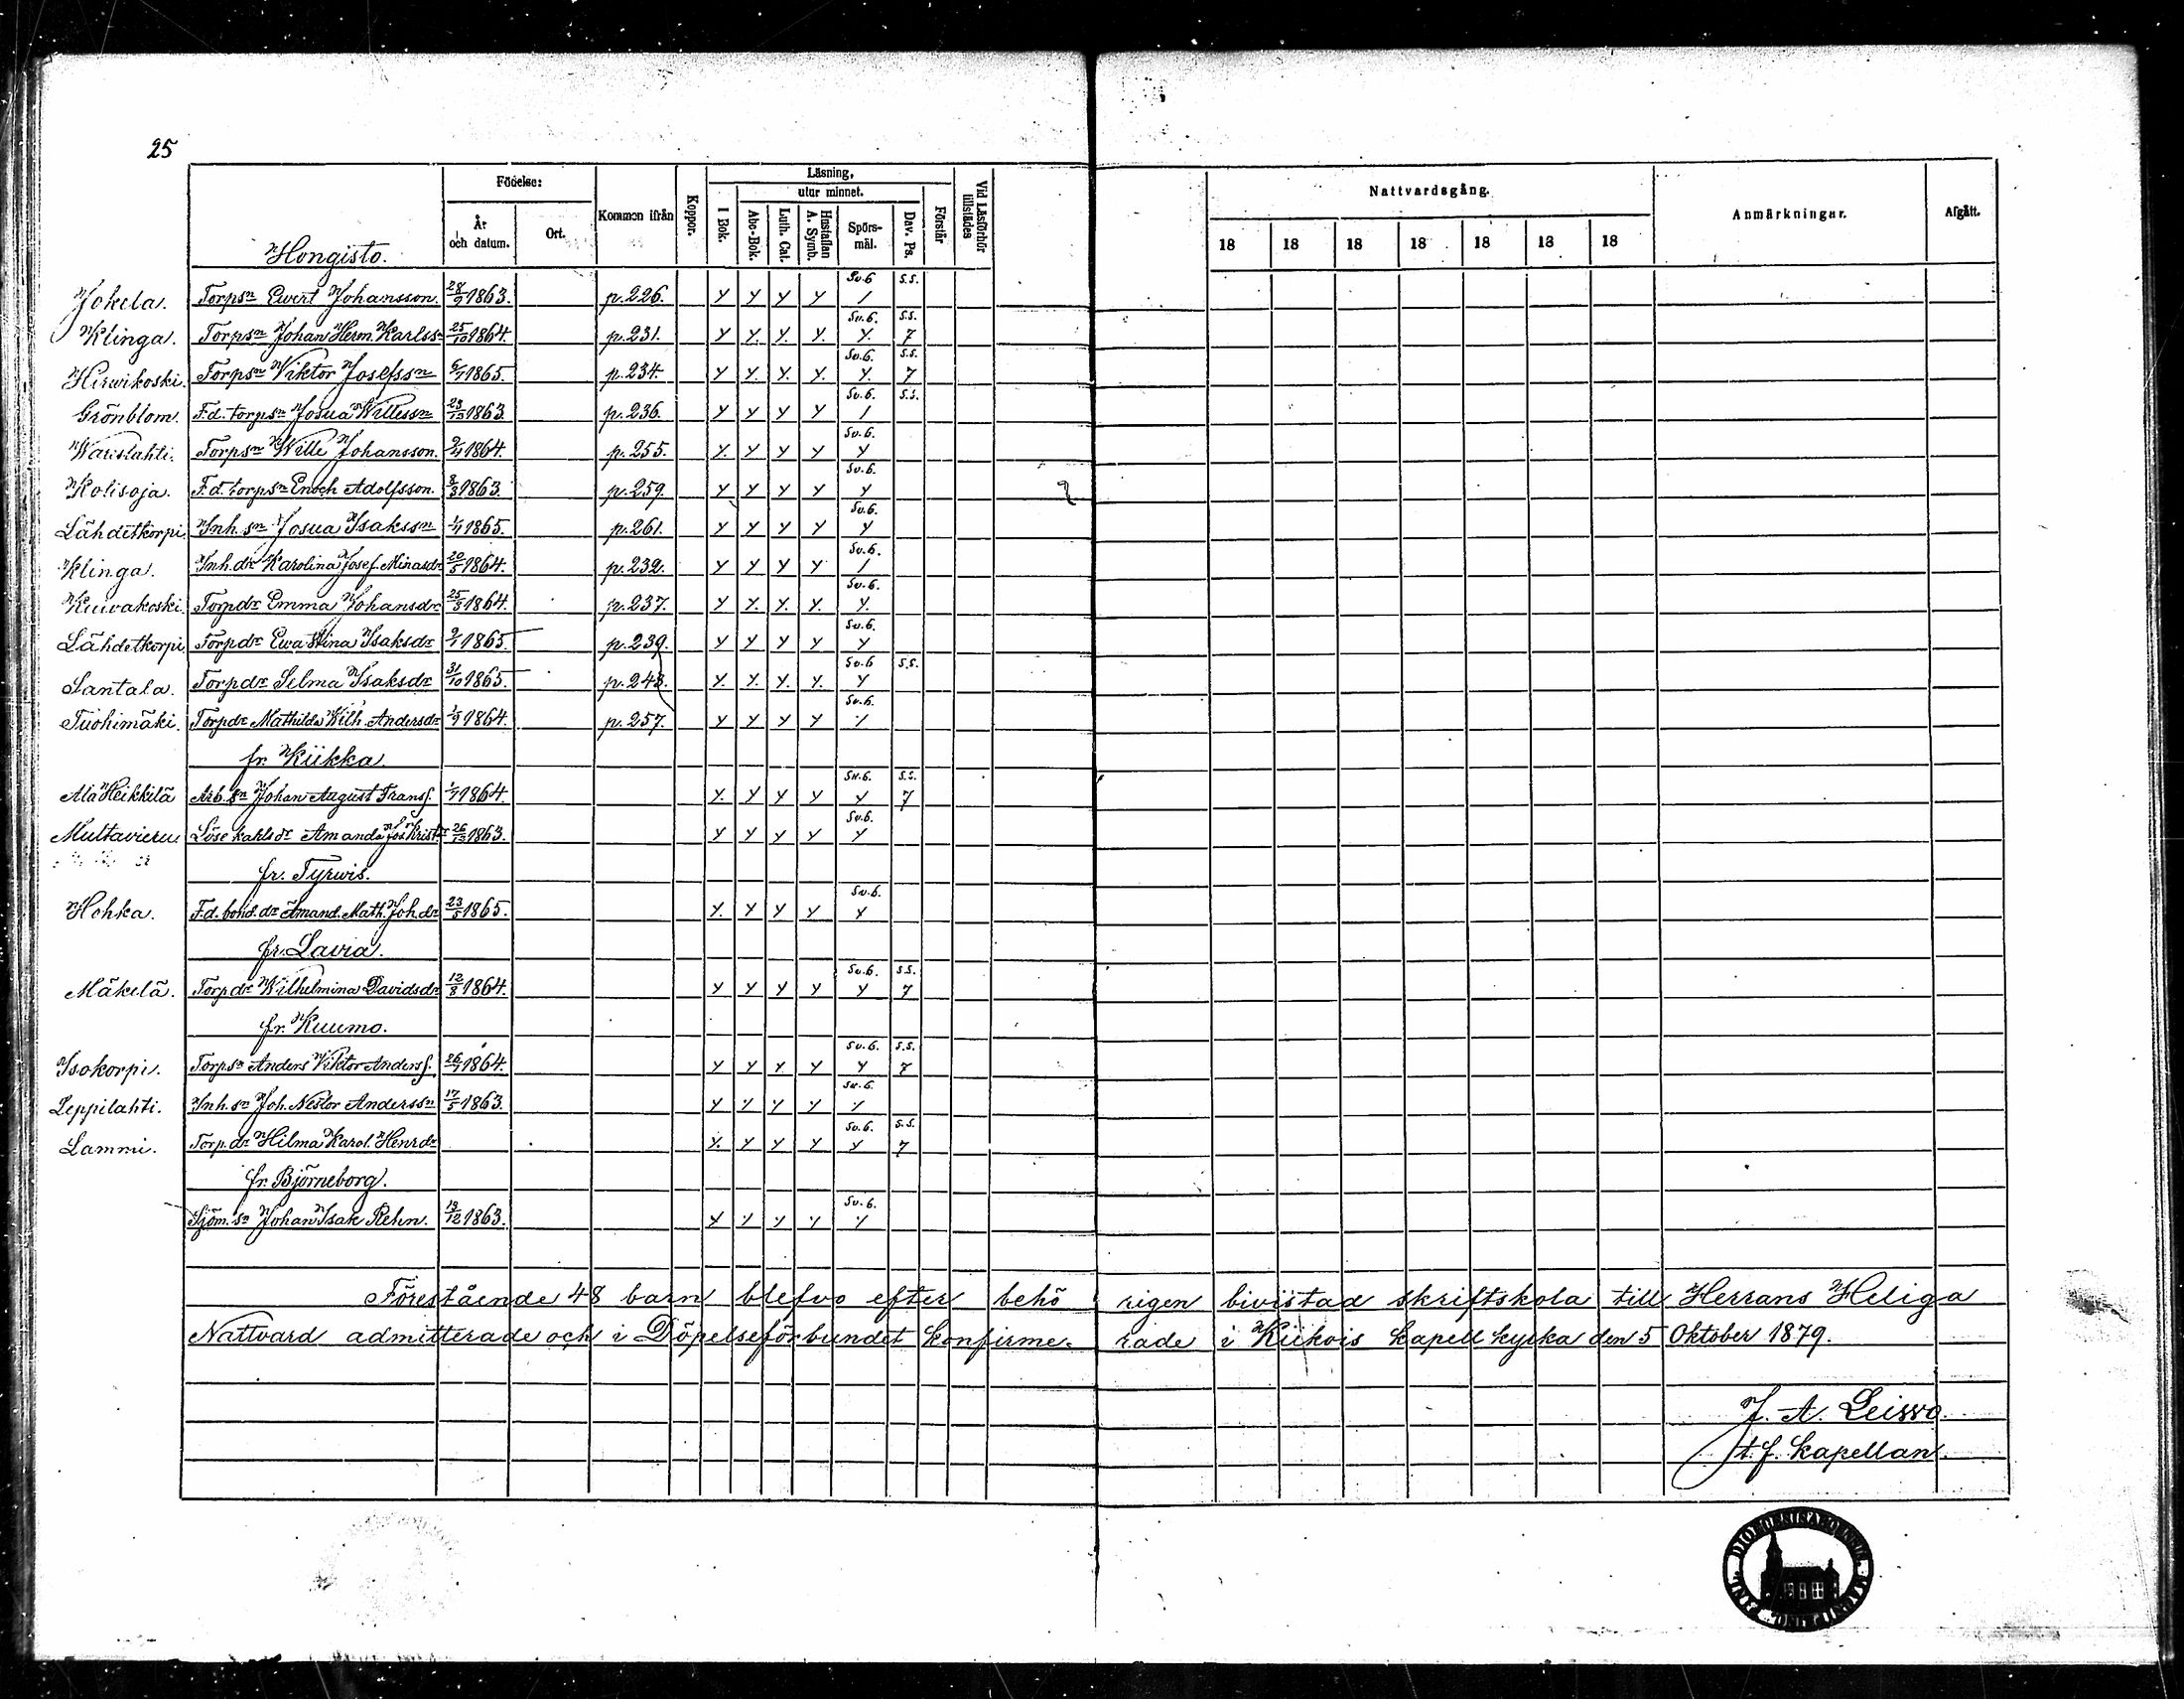 25
Födelse: Läsning, Nattvardsgång.
utur minnet.
År och datum. Ort. Kommen ifrån Koppor. I Bok. Abc-Bok. Luth. Cat. Hustaflan A. Symb. Spörsmål. Dav. Ps. Förstår Vid Läsförhör tillstädes 18 18 18 18 18 18 18 Anmärkningar. Afgått.
Hongisto.
Jokela. Torpsn Evert Johansson. 28/9 1863. p. 226. Sv. 6 s.s.
Klinga. Torpsn Johan Herm. Karlssn 25/10 1864. p. 231. Sv. 6. s.s. 7
Hirwikoski. Torpsn Viktor Josefssn 6/1 1865. p. 234. Sv. 6. s.s. 7
Grönblom. F.d. torpsn Josua Willessn 1863. p. 236. Sv. 6. s.s.
Warislahti. Torpsn Wille Johansson. 2/4 1864. p. 255. Sv. 6.
Kolisoja. F.d. torpsn Enoch Adolfsson. 8/3 1863. p. 259. Sv. 6.
Lähdetkorpi. Inh. sn Josua Isakssn 1865. p. 261. Sv. 6.
Klinga. Inh. dr Karolina Josef. Minasdr 20/5 1864. p. 232. Sv. 6.
Kuivakoski. Torpdr Emma Johansdr 25/8 1864. p. 237. Sv. 6.
Lähdetkorpi. Torpdr Ewa Stina Isaksdr 2/1 1865. p. 239. Sv. 6.
Santala. Torpdr Selma Isaksdr 31/10 1865. p. 243. Sv. 6 s.s.
Tuohimäki. Torpdr Mathilda Wilh. Andersdr 1864. p. 257. Sv. 6.
fr. Kiikka
Ala Heikkilä Arb. sn Johan August Fransf. 1864. Sv. 6. s.s. 7
Multavieru. Löse karlsdr Amanda 26/12 1863. Sv. 6.
fr. Tyrwis.
Hohka. F.d. bond. dr Amand. Math. Joh. dr 23/5 1865. Sv. 6.
fr. Lavia.
Mäkelä. Torpdr Wilhelmina Davidsdr 12/8 1864. Sv. 6. s.s. 7
fr. Kuumo.
Isokorpi. Torpsn Anders Viktor Andersf. 1864. Sv. 6. s.s. 7
Leppilahti. Inh. sn Joh. Nestor Anderssn 17/5 1863. Sv. 6.
Lammi. Torp. dr Hilma Karol. Henrdr Sv. 6. s.s. 7
fr. Björneborg.
Sjöm. sn Johan Isak Rehn. 13/12 1863. Sv. 6.
Förestående 48 barn blefvo efter behörigen biviistad skriftskola till Herrans Heliga
Nattvard admitterade och i Döpelseförbundet konfirmerade i Kiikois kapell kyrka den 5 Oktober 1879.
J. A. Leisvo.
t. f. kapellan.